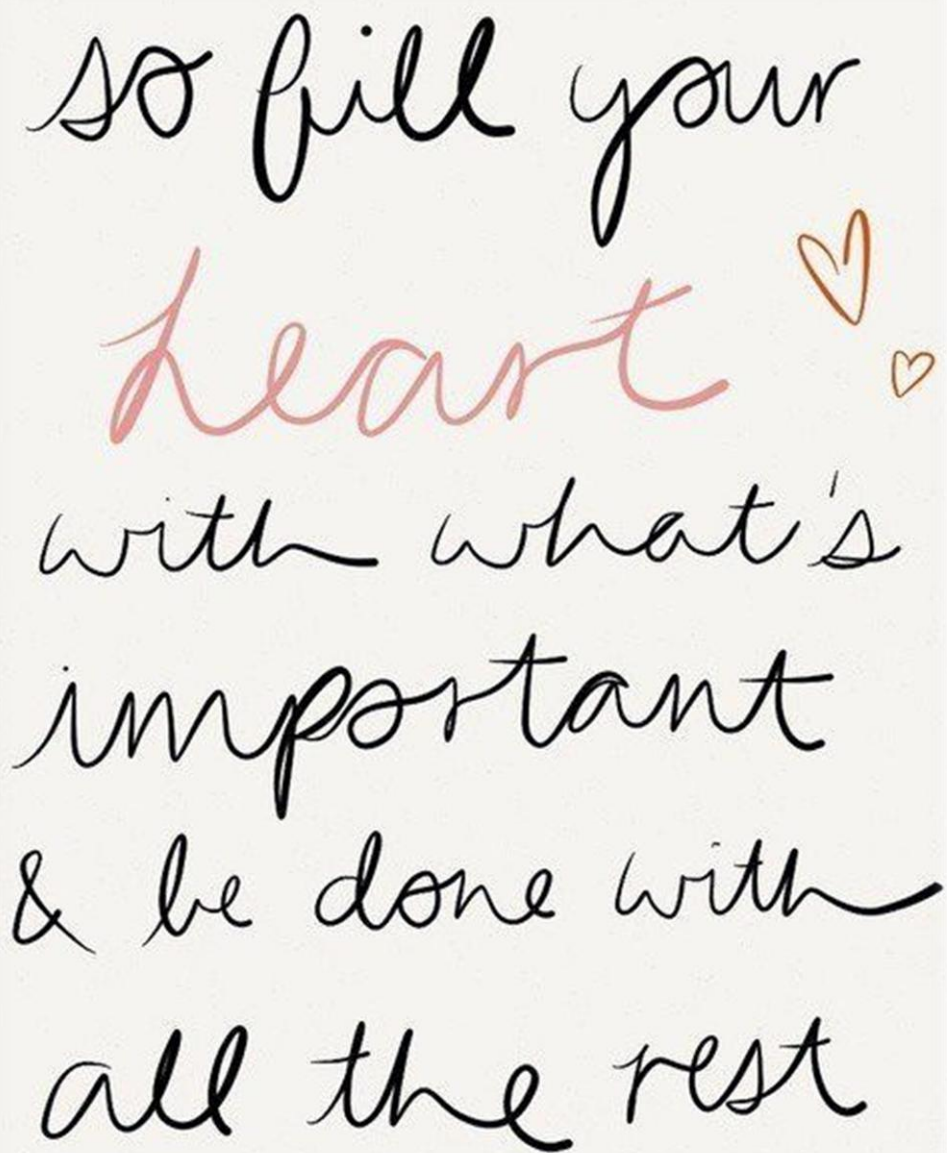 so fill your
heart
with what's
important
& be done with
all the rest